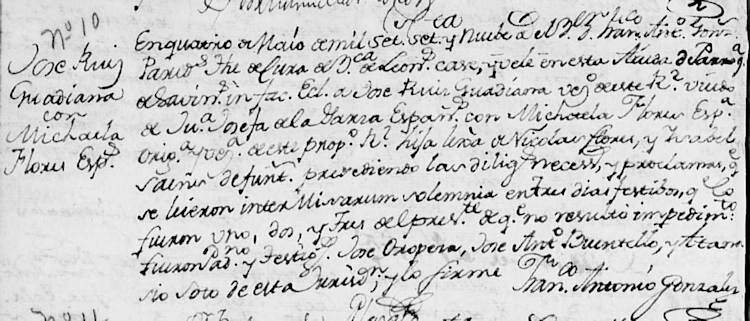 Nº 10
Jose Ruiz
Guadiana
con
Michaela
Flores Espª
En quatro de Maio de mil Set.s Set.ta y Nuebe a. Yo el Br. Dn. Franco. Antº Gonz.
case, y vele en esta Aiuda de Parroqª
de Savin.s in fac. Ecl. a Jose Ruiz Guadiana vezº de este Rl. viudo
de Juª Josefa de la Garza Españª con Michaela Flores Espª
orig.ª y vezª de este propº Rl. hija lexª de Nicolas Flores, y Ysabel
defunt.s presediendo las dilig.s necess.s, y proclamas, q
se leieron inter Missarum solemnia en tres dias festibos, q
fueron uno, dos, y tres del pres.te de q.e no resultó impedim.to
fueron Pad.nos y Testig.s Jose Oropeza, Jose Antº Buentello, y Atana
sio Soto de esta Jurisd.n, y lo firmé
Franco. Antonio Gonzales